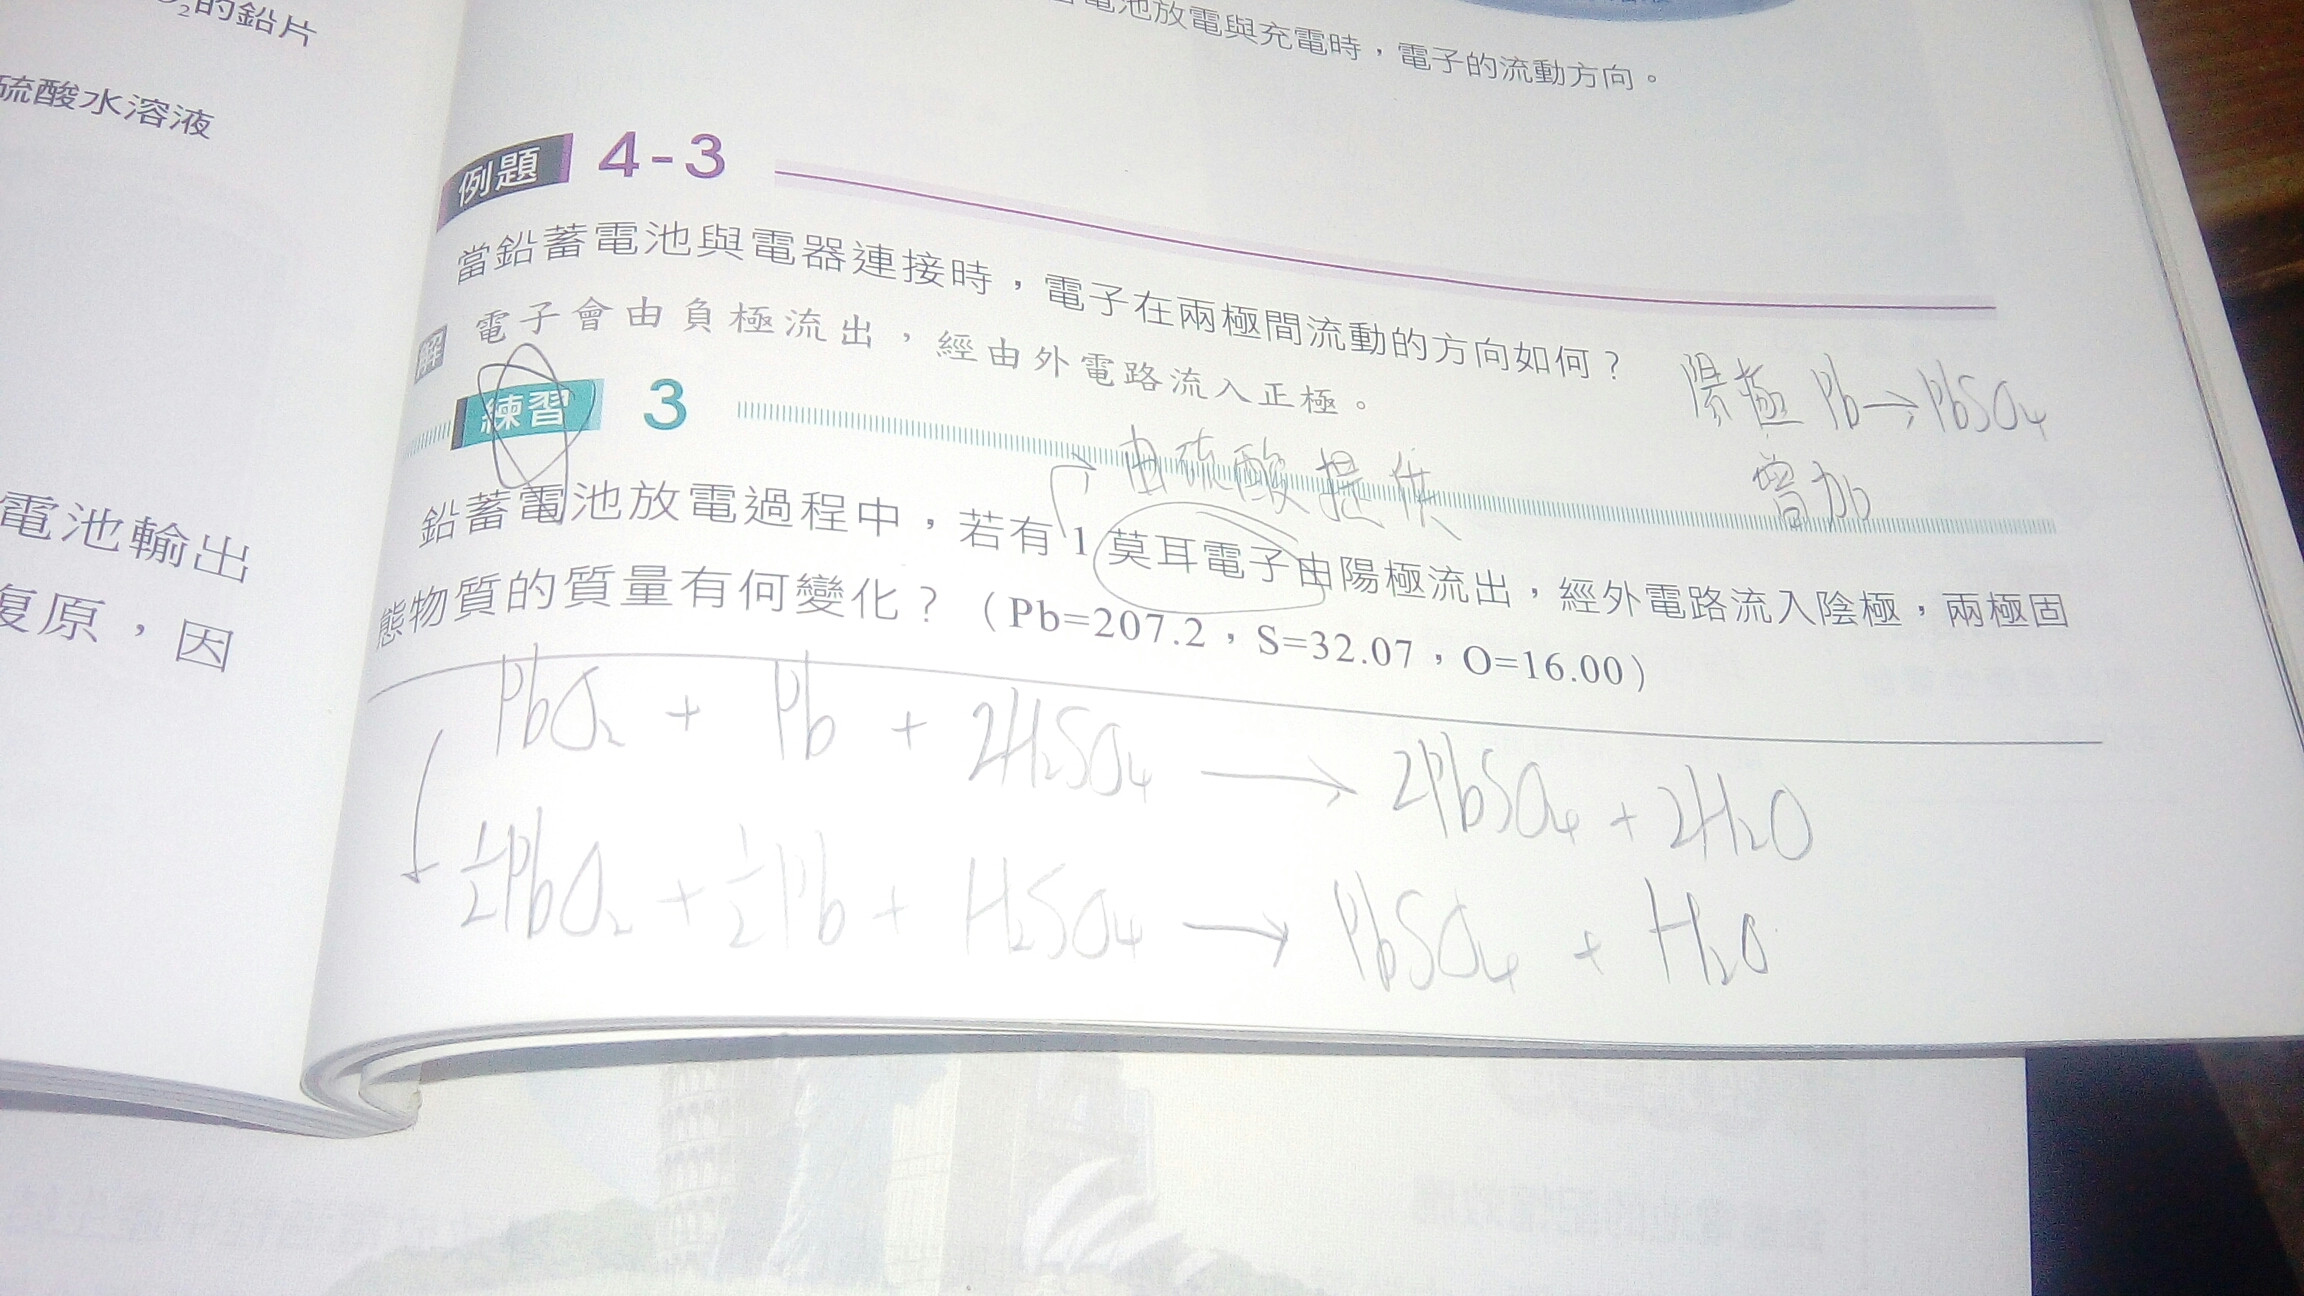 ₂的鉛片
硫酸水溶液
電池輸出
復原，因
電池放電與充電時，電子的流動方向。
例題 4-3
當鉛蓄電池與電器連接時，電子在兩極間流動的方向如何？
解 電子會由負極流出，經由外電路流入正極。
陽極 Pb→PbSO₄
增加
練習 3
由硫酸提供
鉛蓄電池放電過程中，若有 1 莫耳電子由陽極流出，經外電路流入陰極，兩極固
態物質的質量有何變化？（Pb=207.2，S=32.07，O=16.00）
PbO₂ + Pb + 2H₂SO₄ → 2PbSO₄ + 2H₂O
½PbO₂ + ½Pb + H₂SO₄ → PbSO₄ + H₂O